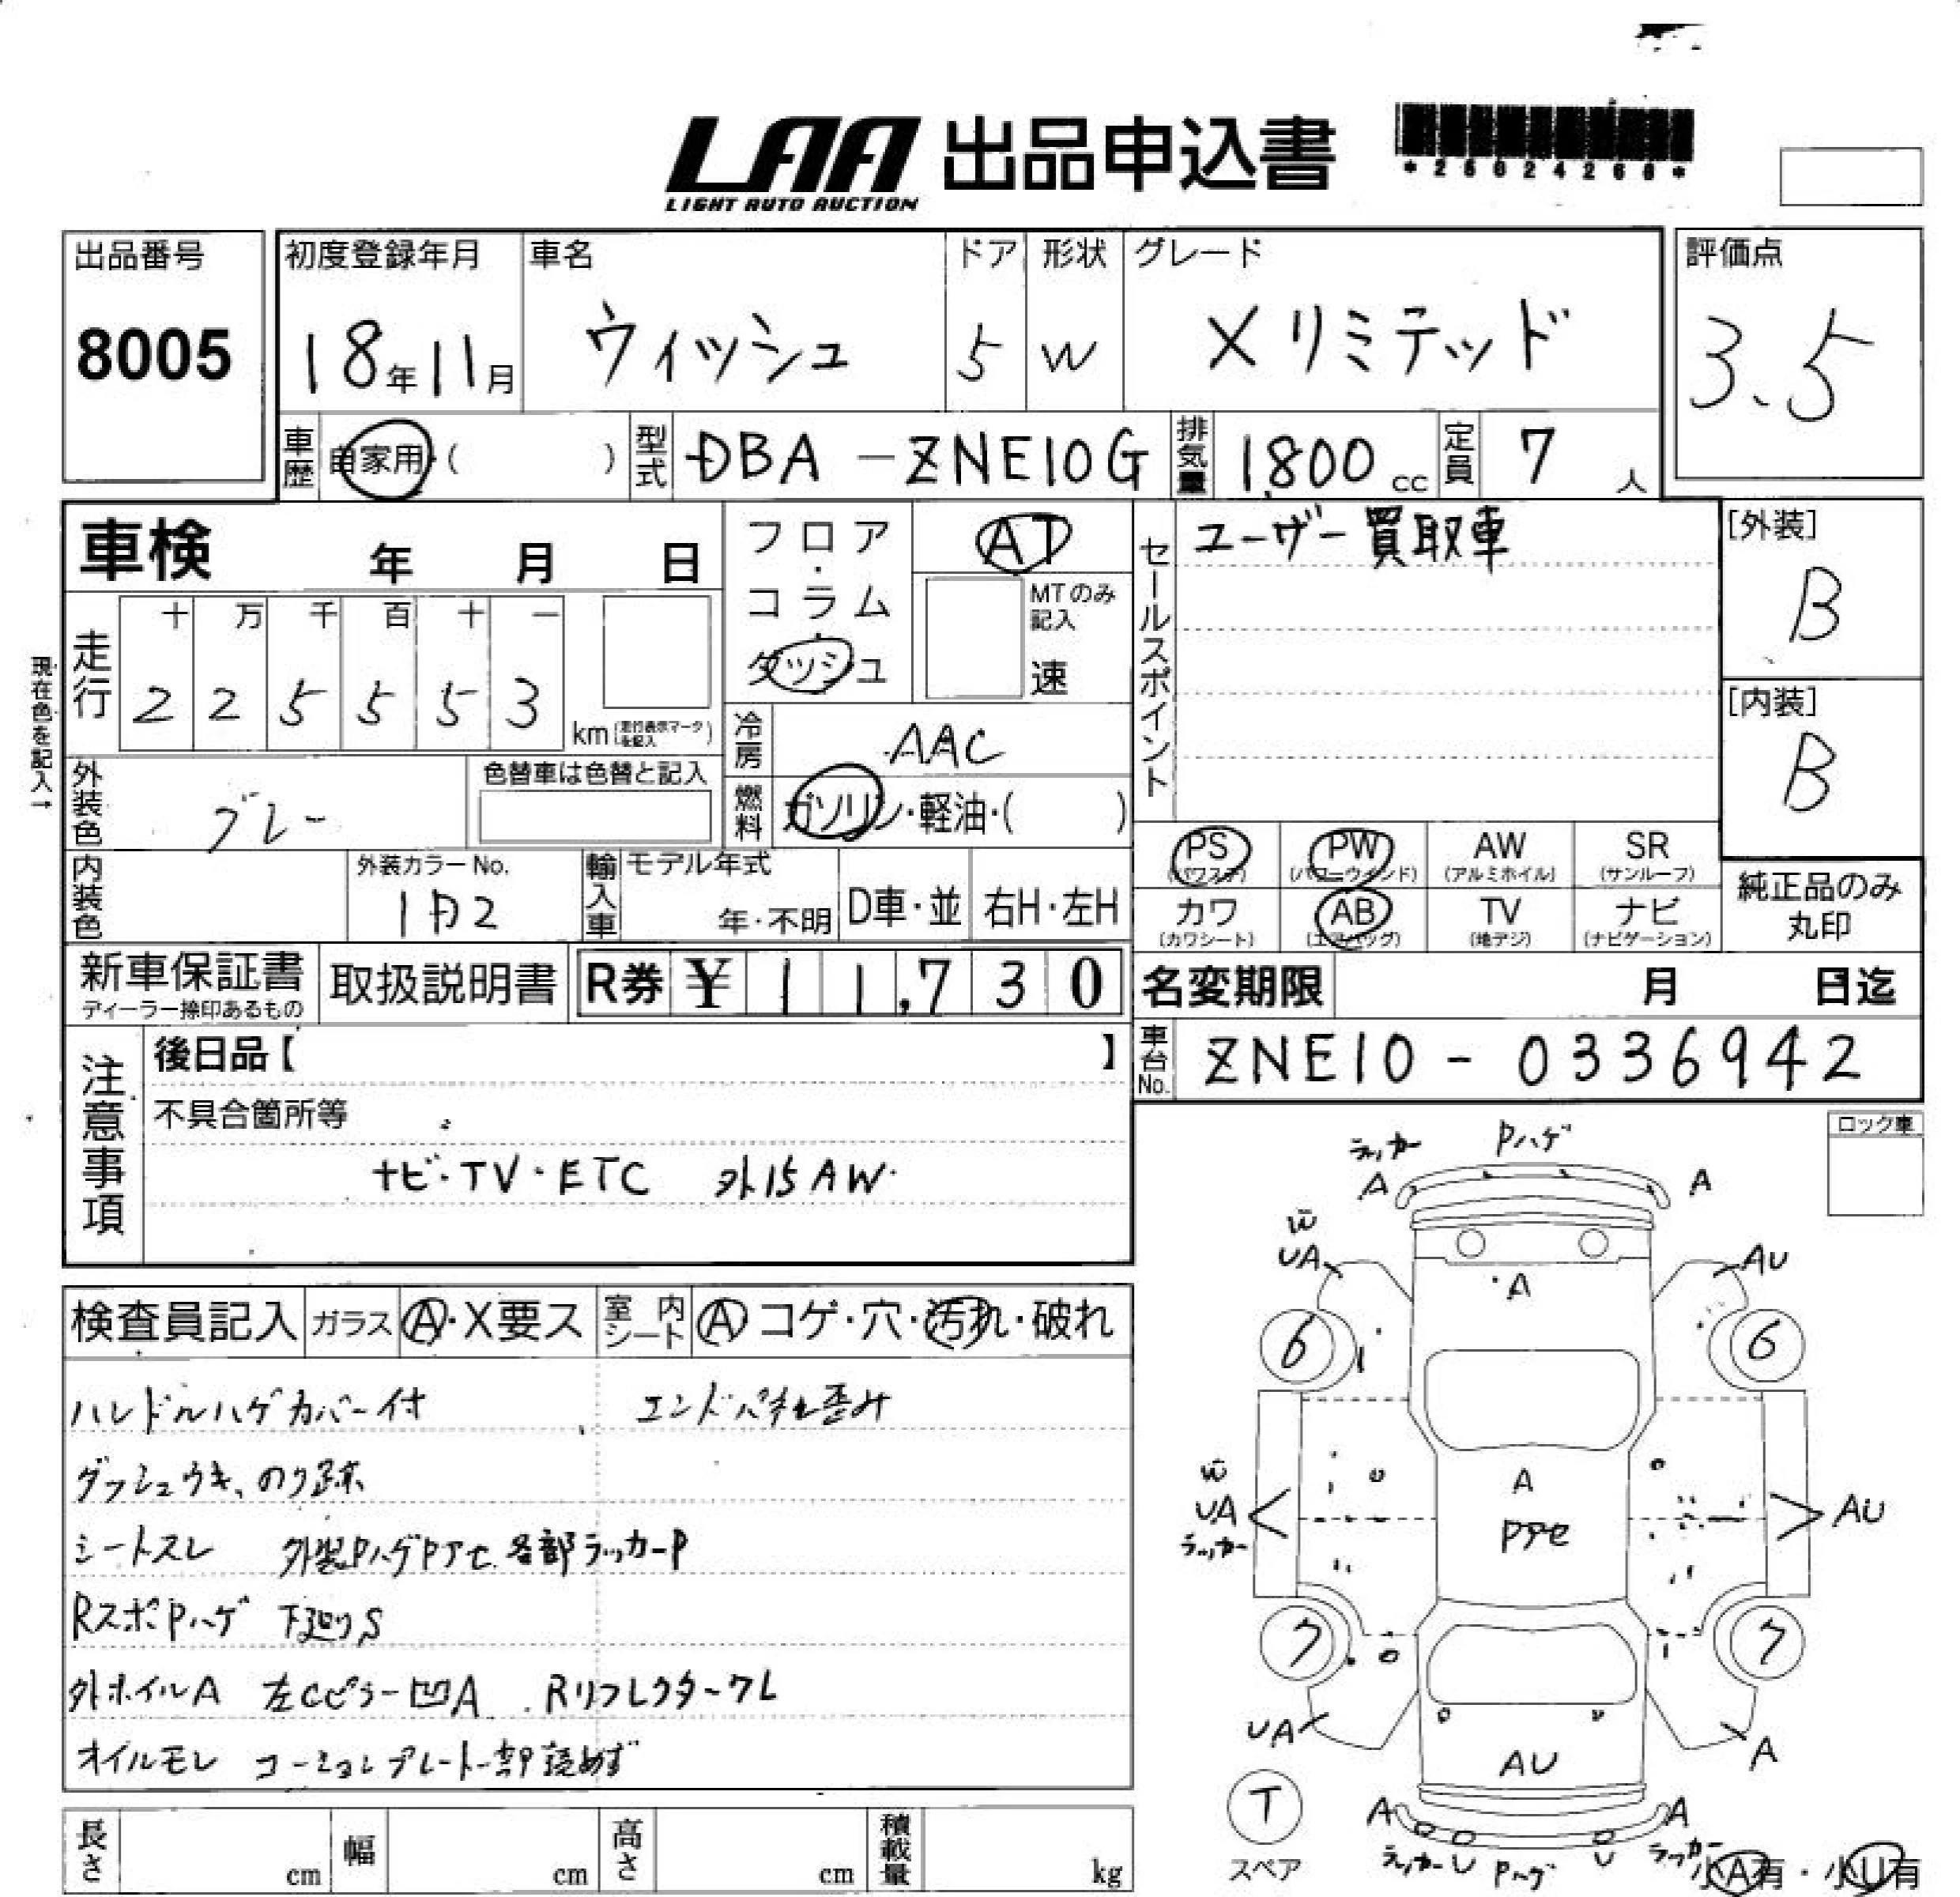 LAA 出品申込書
LIGHT AUTO AUCTION
出品番号
8005
初度登録年月
18年11月
車名
ウィッシュ
ドア
5
形状
W
グレード
Xリミテッド
評価点
3.5
車歴
自家用・( )
型式
DBA-ZNE10G
排気量
1,800 cc
定員
7 人
車検 年 月 日
フロア・コラム・ダッシュ
AT
MTのみ記入
速
セールスポイント
ユーザー買取車
[外装]
B
[内装]
B
現在色を記入→
走行
十 万 千 百 十 一
2 2 5 5 5 3
km (走行表示マークを記入)
冷房
AAC
燃料
ガソリン・軽油・( )
外装色
グレー
色替車は色替と記入
内装色
外装カラーNo.
1D2
輸入車
モデル年式
年・不明
D車・並
右H・左H
PS (パワステ)
PW (パワーウインド)
AW (アルミホイル)
SR (サンルーフ)
カワ (カワシート)
AB (エアバッグ)
TV (地デジ)
ナビ (ナビゲーション)
純正品のみ丸印
新車保証書
ディーラー捺印あるもの
取扱説明書
R券 ¥ 11,730
名変期限 月 日迄
車台No.
ZNE10-0336942
注意事項
後日品【 】
不具合箇所等
ナビ・TV・ETC 外15AW
ロック車
検査員記入
ガラス
A・X要ス
室内シート
A コゲ・穴・汚れ・破れ
ハンドルハゲカバー付 エンドパネル歪み
ダッシュウキ、のり跡
シートスレ 外装PハゲPアセ 各部ラッカーP
RスポPハゲ 下廻りS
外ホイルA 左Cピラー凹A Rリフレクターワレ
オイルモレ コーションプレート一部読めず
ラッカー Pハゲ
A A
W
UA AU
A
6 6
W
UA A AU
ラッカー Pアセ
7 7
UA A
AU
T
スペア
A A
ラッカー U Pハゲ U ラッカー
小A有・小U有
長さ cm
幅 cm
高さ cm
積載量 kg